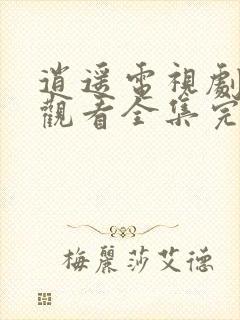 逍遥電視劇
觀看全集完
梅麗莎艾德